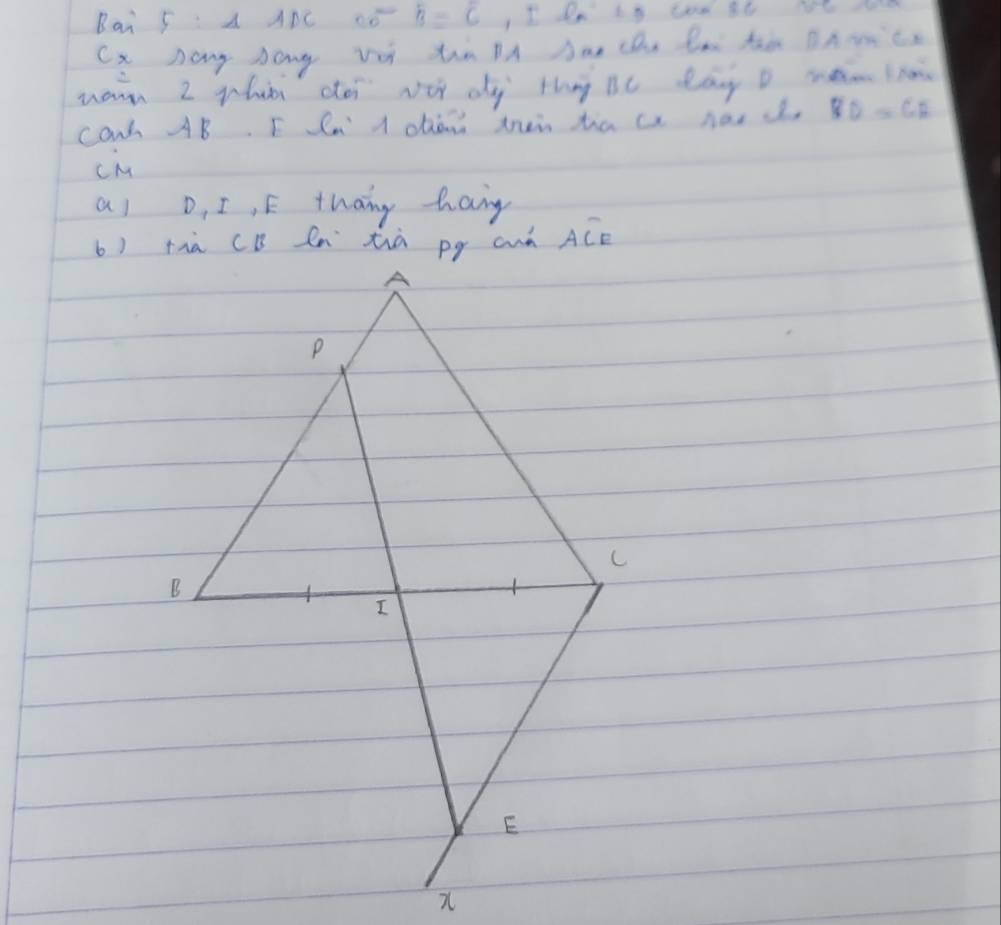 Bài 5 : Δ ABC có B̂ = Ĉ , I là
Cx song song với tia BA sao cho hai tia BA và Cx
nằm 2 phía đối với đg thẳg BC lấy D nằm trên
cạnh AB . E là 1 điểm trên tia Cx sao cho BD = CE
CM
a) D, I, E thẳng hàng
b) tia CB là tia pg của ACE
A
D
B
I
C
E
x